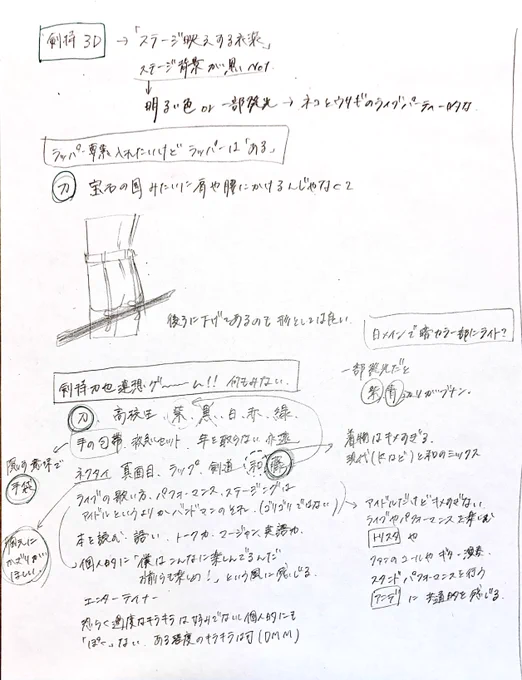 剣持 3D → 「ステージ映えする衣装」
ステージ背景が黒い No1
↓
明るい色 or 一部発光 → ネコとウサギのライブパーティーのような
ラッパー要素 入れたいけど ラッパーは「ある」
刀 宝石の国みたいに肩や腰にかけるんじゃなくて
後ろに下げてあるのも 形としては良い
白メインで暗カラー部にライト?
剣持刀也連想ゲーーム!! 何もみない
一部発光だと
紫 青 あたりがブナン
刀 高校生 紫 黒 白 赤 緑
手の包帯 救急セット 年を取らない 永遠
着物はキメすぎる
現代(Kなど)と和のミックス
手袋
ネクタイ 真面目 ラップ 剣道 和
ライブの歌い方、パフォーマンス、ステージングは
アイドルというよりかバンドマンのそれ (ゴリゴリではない)
アイドルだけどキメすぎない
ライブやパフォーマンスを楽しむ
トリスタ や
かざりが
ほしい
本を読む 語い トーク力 マージャン 英語力
個人的に「僕はこんなに楽しんでるんだ
君らも楽しめ!」という風に感じる
ファンのコールやギター演奏
スタンドパフォーマンスを行う
アンデ に 共通的を感じる
エンターテイナー
恐らく過度なキラキラは好みでないし個人的にも
「ぽく」ない ある程度のキラキラは可 (DMM)